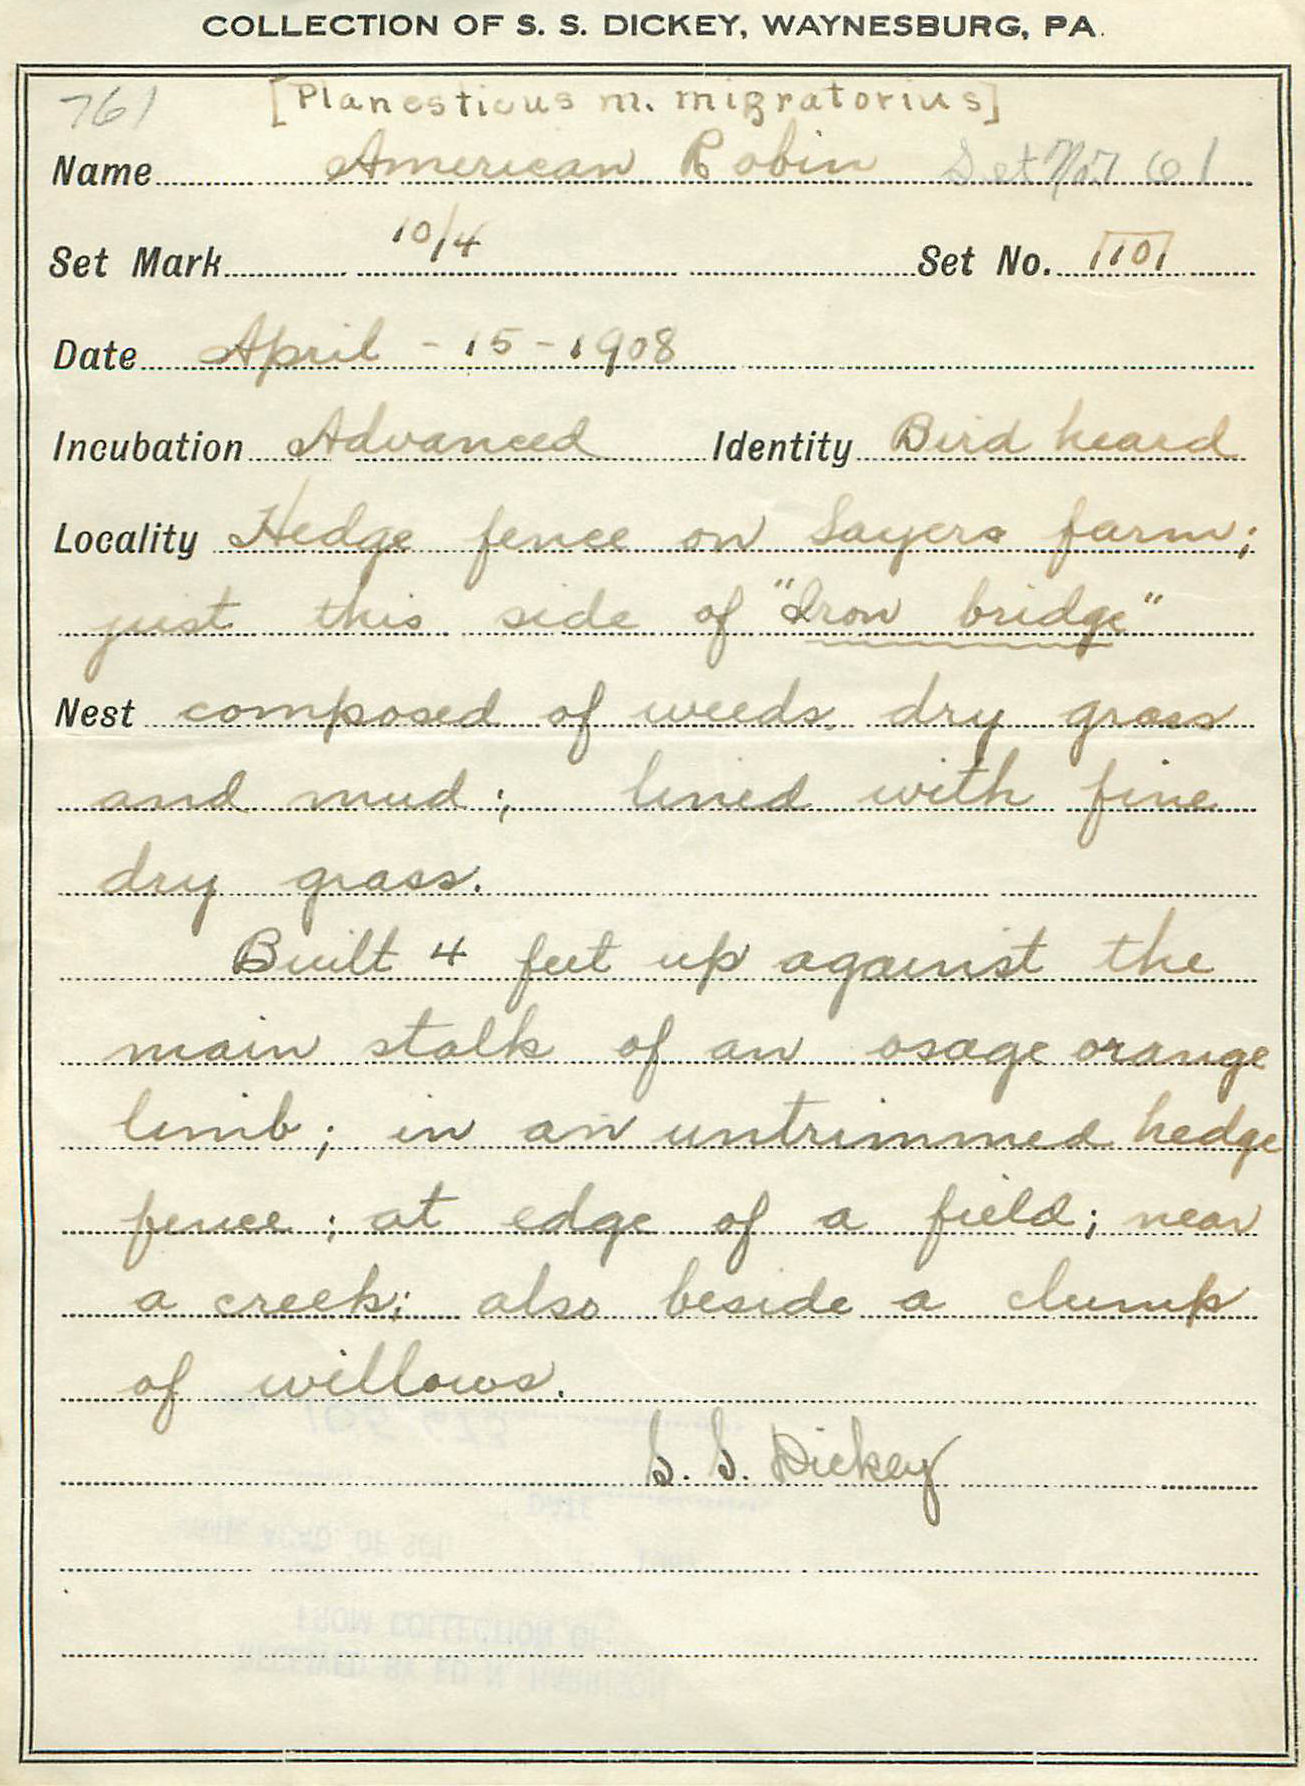 COLLECTION OF S. S. DICKEY, WAYNESBURG, PA.
761 [Planesticus m. migratorius]
Name American Robin Set No. 761
Set Mark 10/4 Set No. 110
Date April - 15 - 1908
Incubation Advanced Identity Bird heard
Locality Hedge fence on Sayers farm;
just this side of "Iron bridge"
Nest composed of weeds, dry grass
and mud; lined with fine
dry grass.
Built 4 feet up against the
main stalk of an osage orange
limb; in an untrimmed hedge
fence; at edge of a field; near
a creek; also beside a clump
of willows.
S. S. Dickey